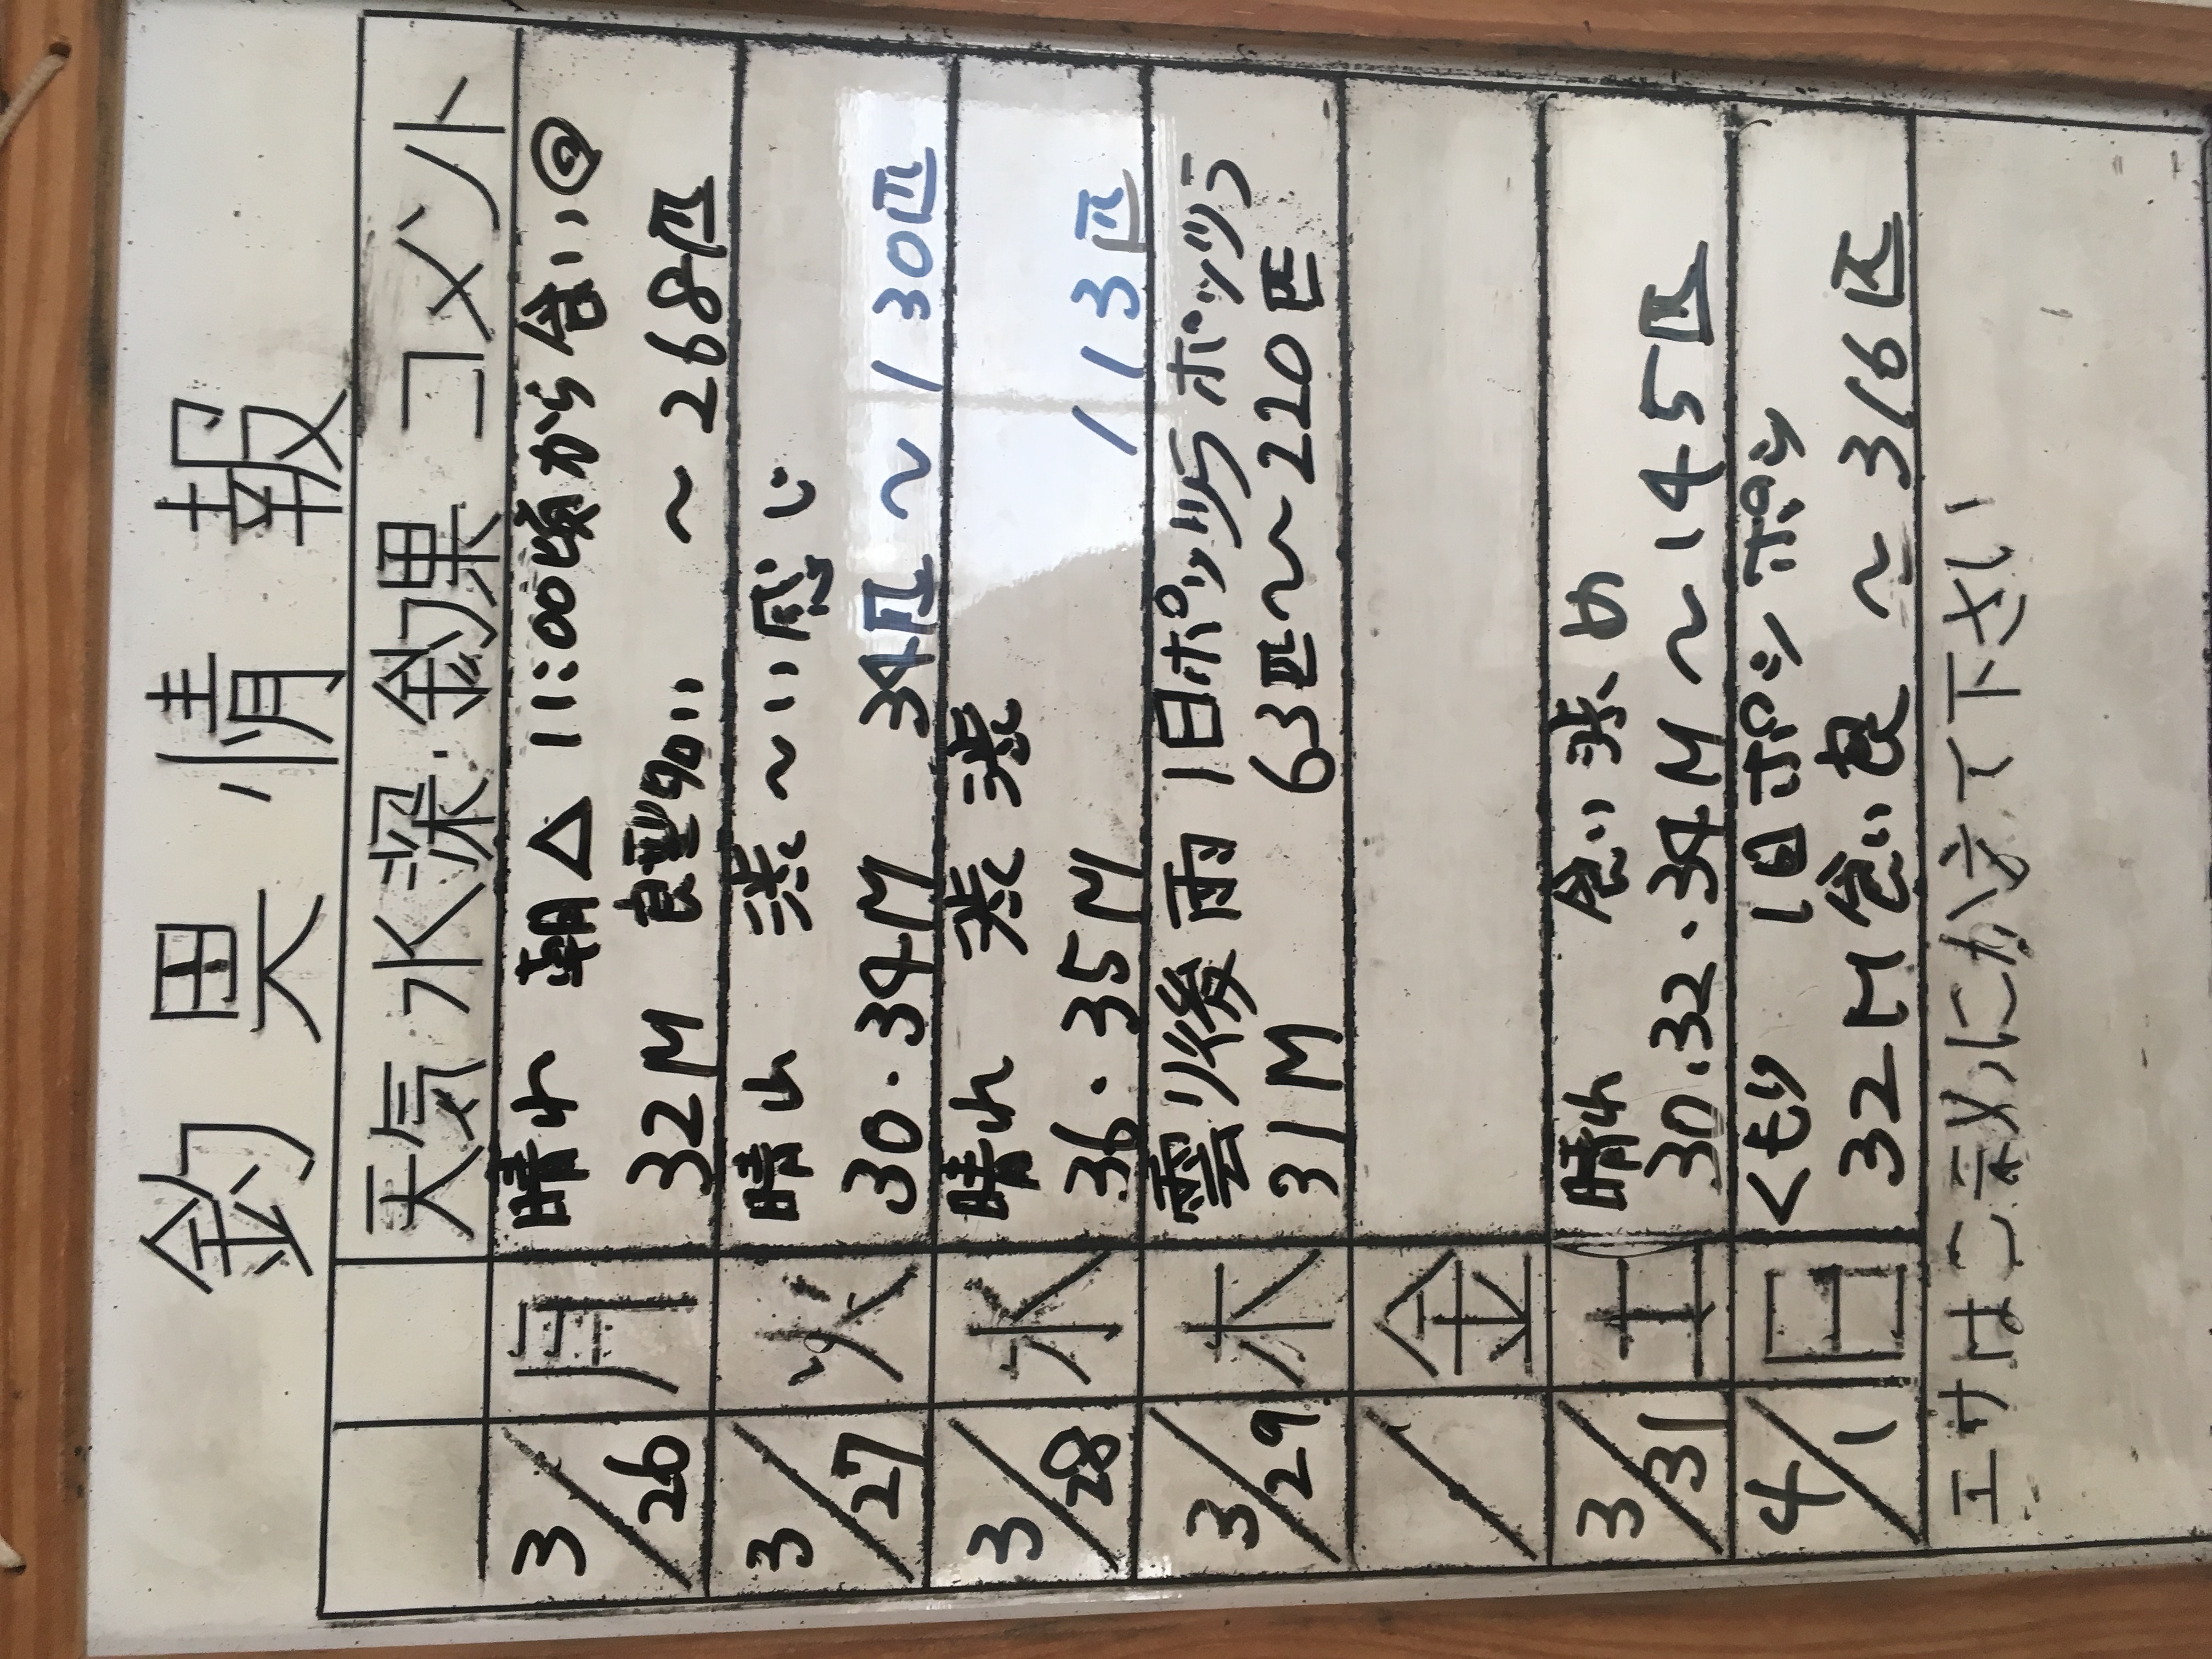 釣果情報
天気 水深・釣果 コメント
3/26 月 晴れ 朝△ 11:00頃から食い◎
32M 良型多い ~268匹
3/27 火 晴れ 渋~い感じ
30・34M 34匹~130匹
3/28 水 晴れ 渋 渋
36・35M 113匹
3/29 木 雲り後雨 1日ポッツラポッツラ
31M 63匹~220匹
/ 金
3/31 土 晴れ 食い渋め
30.32.34M ~145匹
4/1 日 くもり 1日ポツポツ
32M 食い良 ~316匹
エサはこまめにかえて下さい